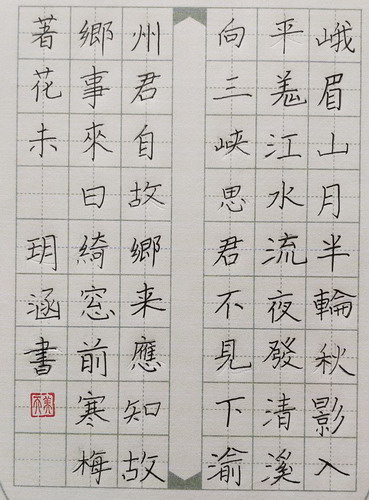 峨眉山月半輪秋影入
平羌江水流夜發清溪
向三峡思君不見下渝
州君自故鄉来應知故
鄉事來日綺窓前寒梅
著花未 玥涵書